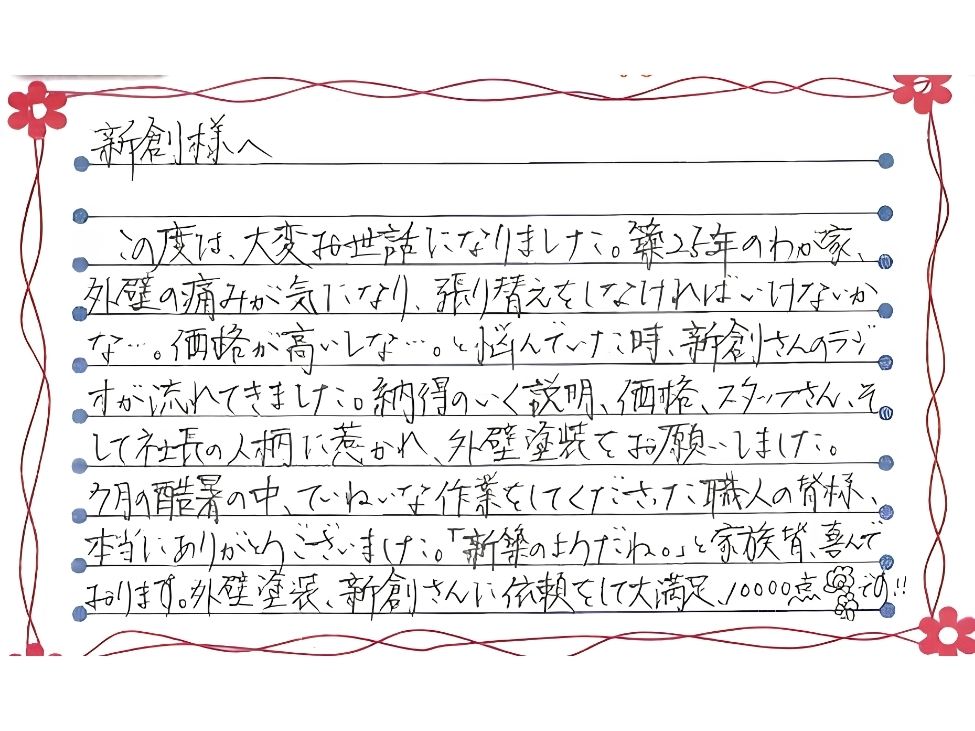 新創様へ
この度は、大変お世話になりました。築25年のわが家、
外壁の痛みが気になり、張り替えをしなければいけないか
な…。価格が高いしな…。と悩んでいた時、新創さんのラジ
オが流れてきました。納得のいく説明、価格、スタッフさん、そ
して社長の人柄に惹かれ、外壁塗装をお願いしました。
7月の酷暑の中、ていねいな作業をしてくださった職人の皆様、
本当にありがとうございました。「新築のようだね。」と家族皆、喜んで
おります。外壁塗装、新創さんに依頼をして大満足、10000点です!!